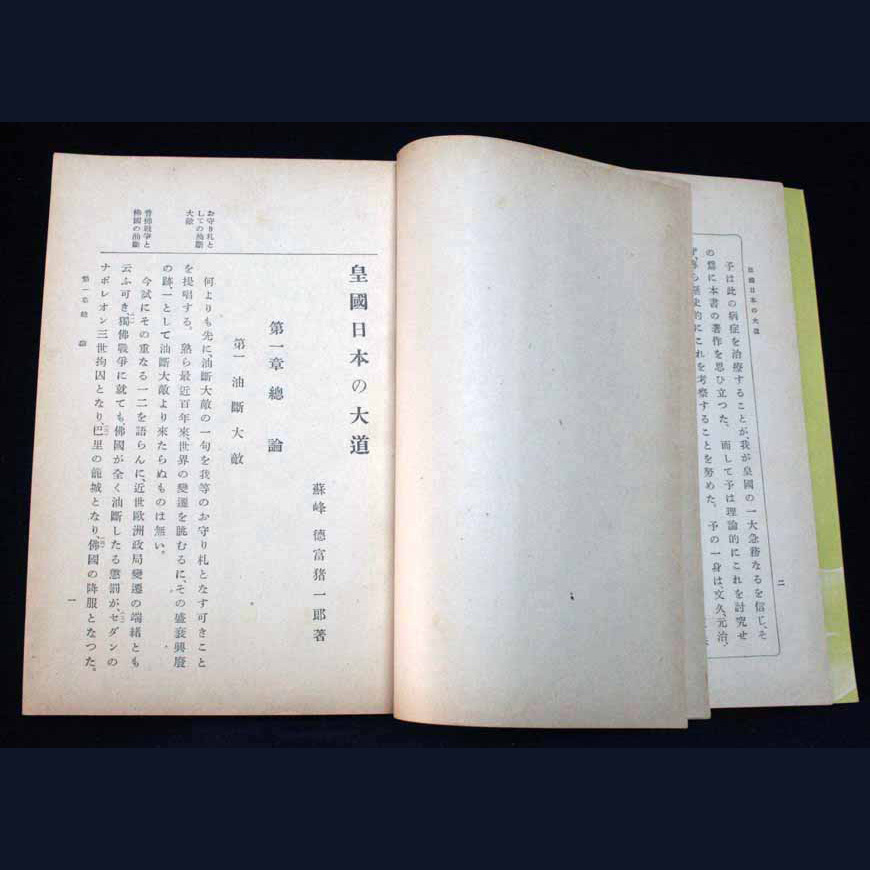 皇國日本の大道
予は此の病症を治療することが、我が皇國の一大急務なるを信じ、そ
の爲に本書の著作を思ひ立つた。而して予は理論的にこれを討究せ
歷史的にこれを考察することを努めた。予の一身は、文久、元治、
二
皇國日本の大道
蘇峰 德富猪一郎著
第一章 總論
第一 油斷大敵
お守り札と
しての油斷
大敵
何よりも先に、油斷大敵の一句を我等のお守り札となす可きこと
を提唱する。熟ら最近百年來、世界の變遷を眺むるに、その盛衰興廢
の跡、一として油斷大敵より來たらぬものは無い。
普佛戰爭と
佛國の油斷
今試にその重なる一二を語らんに、近世歐洲政局變遷の端緖とも
云ふ可き、獨佛戰爭に就ても佛國が全く油斷したる懲罰が、セダンの
ナポレオン三世拘囚となり、巴里の籠城となり、佛國の降服となつた。
第一章 總論
一